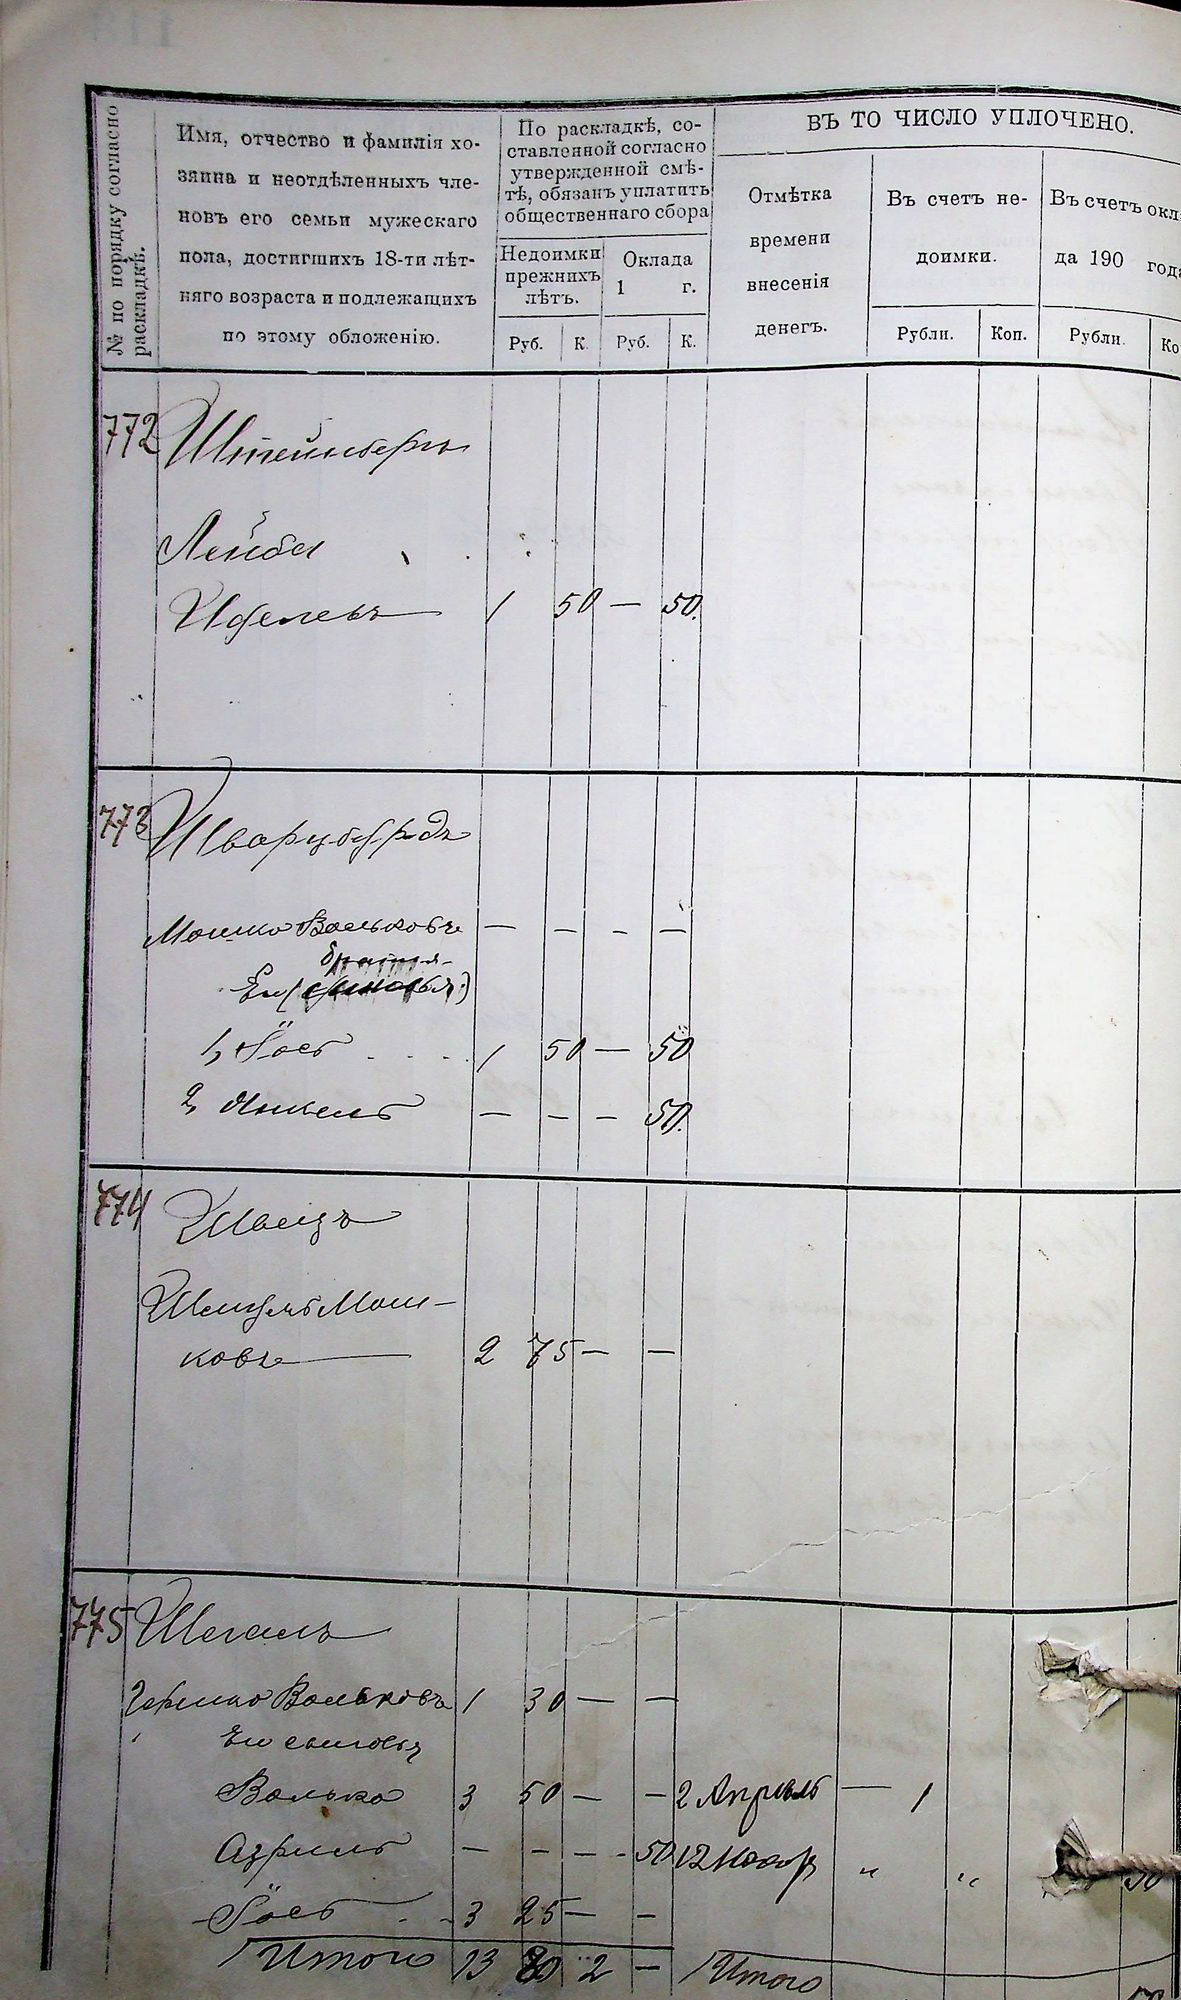 № по порядку согласно
раскладкѣ.
Имя, отчество и фамилія хо-
зяина и неотдѣленныхъ чле-
новъ его семьи мужескаго
пола, достигшихъ 18-ти лѣт-
няго возраста и подлежащихъ
по этому обложенію.
По раскладкѣ, со-
ставленной согласно
утвержденной смѣ-
тѣ, обязанъ уплатить
общественнаго сбора
Недоимки
прежнихъ
лѣтъ.
Оклада
1 г.
Руб. К. Руб. К.
ВЪ ТО ЧИСЛО УПЛОЧЕНО.
Отмѣтка
времени
внесенія
денегъ.
Въ счетъ не-
доимки.
Рубли. Коп.
Въ счетъ окл
да 190 года
Рубли. Ко
772 Штейнберъ
Лейба
Иделевъ 1 50 — 50.
773 Шварцбурдъ
Мошко Вольковъ — — — —
братья
Его (сыновья)
1, Іось 1 50 — 50
2, Янкель — — — 50.
774 Швецъ
Шмуль Мош-
ковъ 2 75 — —
775 Шегалъ
Гершко Вольковъ 1 30 — —
Его сыновья
Волько 3 50 — — 2 Апрель — 1
Азриль — — — 50 12 Ноябр " " 50
Іось 3 25 — —
Итого 13 80 2 — Итого
50